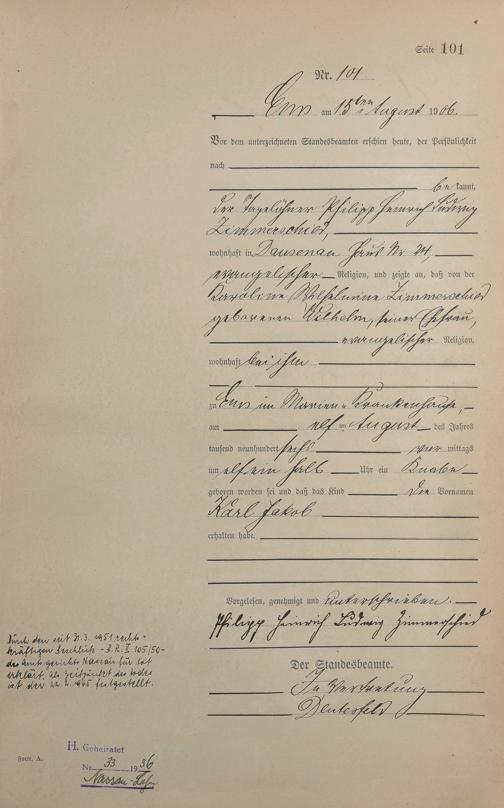 Seite 101
Nr. 101
Ems am 15ten August 1906.
Vor dem unterzeichneten Standesbeamten erschien heute, der Persönlichkeit
nach
be kannt,
der Tagelöhner Philipp Heinrich Ludwig
Zimmerschied,
wohnhaft in Dausenau Haus Nr 21,
evangelischer Religion, und zeigte an, daß von der
Karoline Wilhelmine Zimmerschied
geborenen Wilhelm, seiner Ehefrau,
evangelischer Religion,
wohnhaft bei ihm
zu Ems im Marien-Krankenhause,
am elf ten August des Jahres
tausend neunhundert sechs vor mittags
um elf ein halb Uhr ein Knabe
geboren worden sei und daß das Kind die Vornamen
Karl Jakob
erhalten habe.
Vorgelesen, genehmigt und unterschrieben.
Philipp Heinrich Ludwig Zimmerschied
Der Standesbeamte.
In Vertretung
Durch den seit 31.3.1951 rechts-
kräftigen Beschluß - 3. R. II 105/50 -
des Amtsgerichts Nassau für tot
erklärt. Als Zeitpunkt des Todes
ist der 22.2.1945 festgestellt.
H. Geheiratet
Nr. 33 1936
Nassau-Lahn
Form. A.